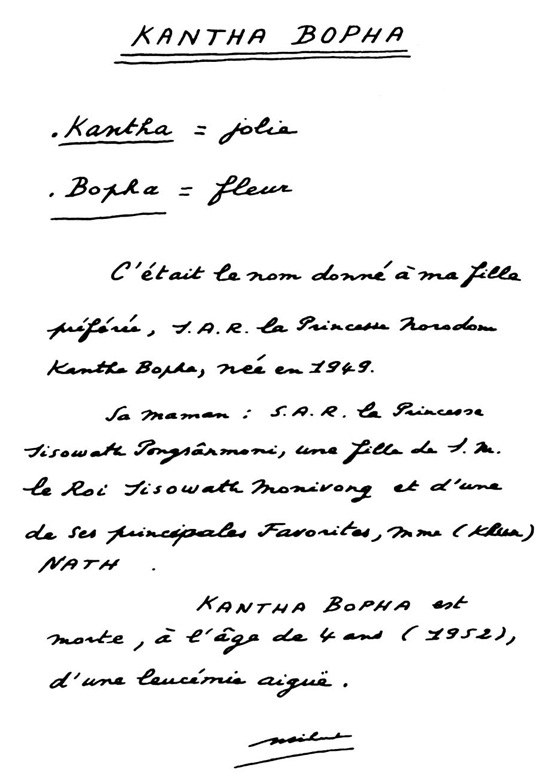 KANTHA BOPHA
. Kantha = jolie
. Bopha = fleur
C'était le nom donné à ma fille
préférée, S.A.R. la Princesse Norodom
Kantha Bopha, née en 1949.
Sa maman : S.A.R. la Princesse
Sisowath Pongsânmoni, une fille de S.M.
le Roi Sisowath Monivong et d'une
de ses principales Favorites, Mme (Khun)
NATH .
KANTHA BOPHA est
morte, à l'âge de 4 ans (1952),
d'une leucémie aiguë.